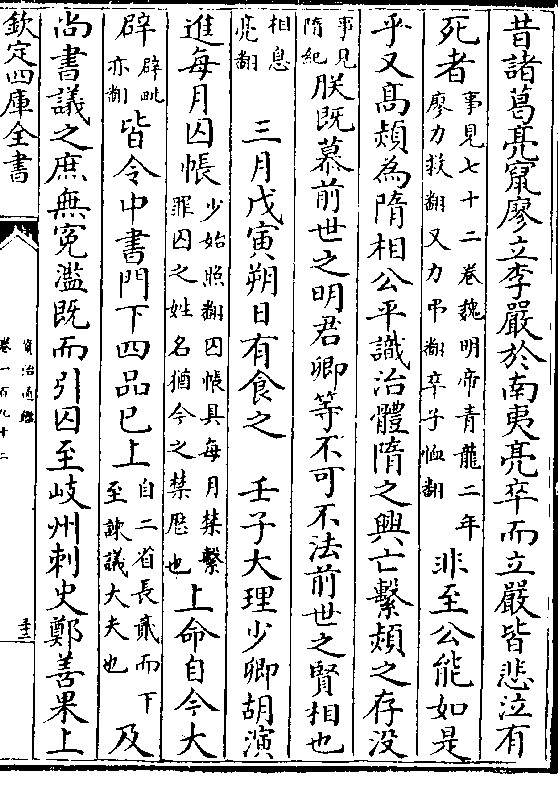 昔諸葛亮竄廖立李嚴於南夷亮卒而立嚴皆悲泣有
死者事見七十二卷魏明帝青龍二年廖力救翻又力弔翻卒子恤翻非至公能如是
乎又髙熲為隋相公平識治體隋之興亡繫熲之存没
事見隋紀朕既慕前世之明君卿等不可不法前世之賢相也
相息亮翻　三月戊寅朔日有食之　壬子大理少卿胡演
進每月囚帳少始照翻囚帳具每月禁繫罪囚之姓名猶今之禁厯也上命自今大
辟辟毗亦翻皆令中書門下四品已上自二省長貳而下至諫議大夫也及
尚書議之庶無寃濫既而引囚至岐州刺史鄭善果上
欽定四庫全書
資治通鑑
卷一百九十二